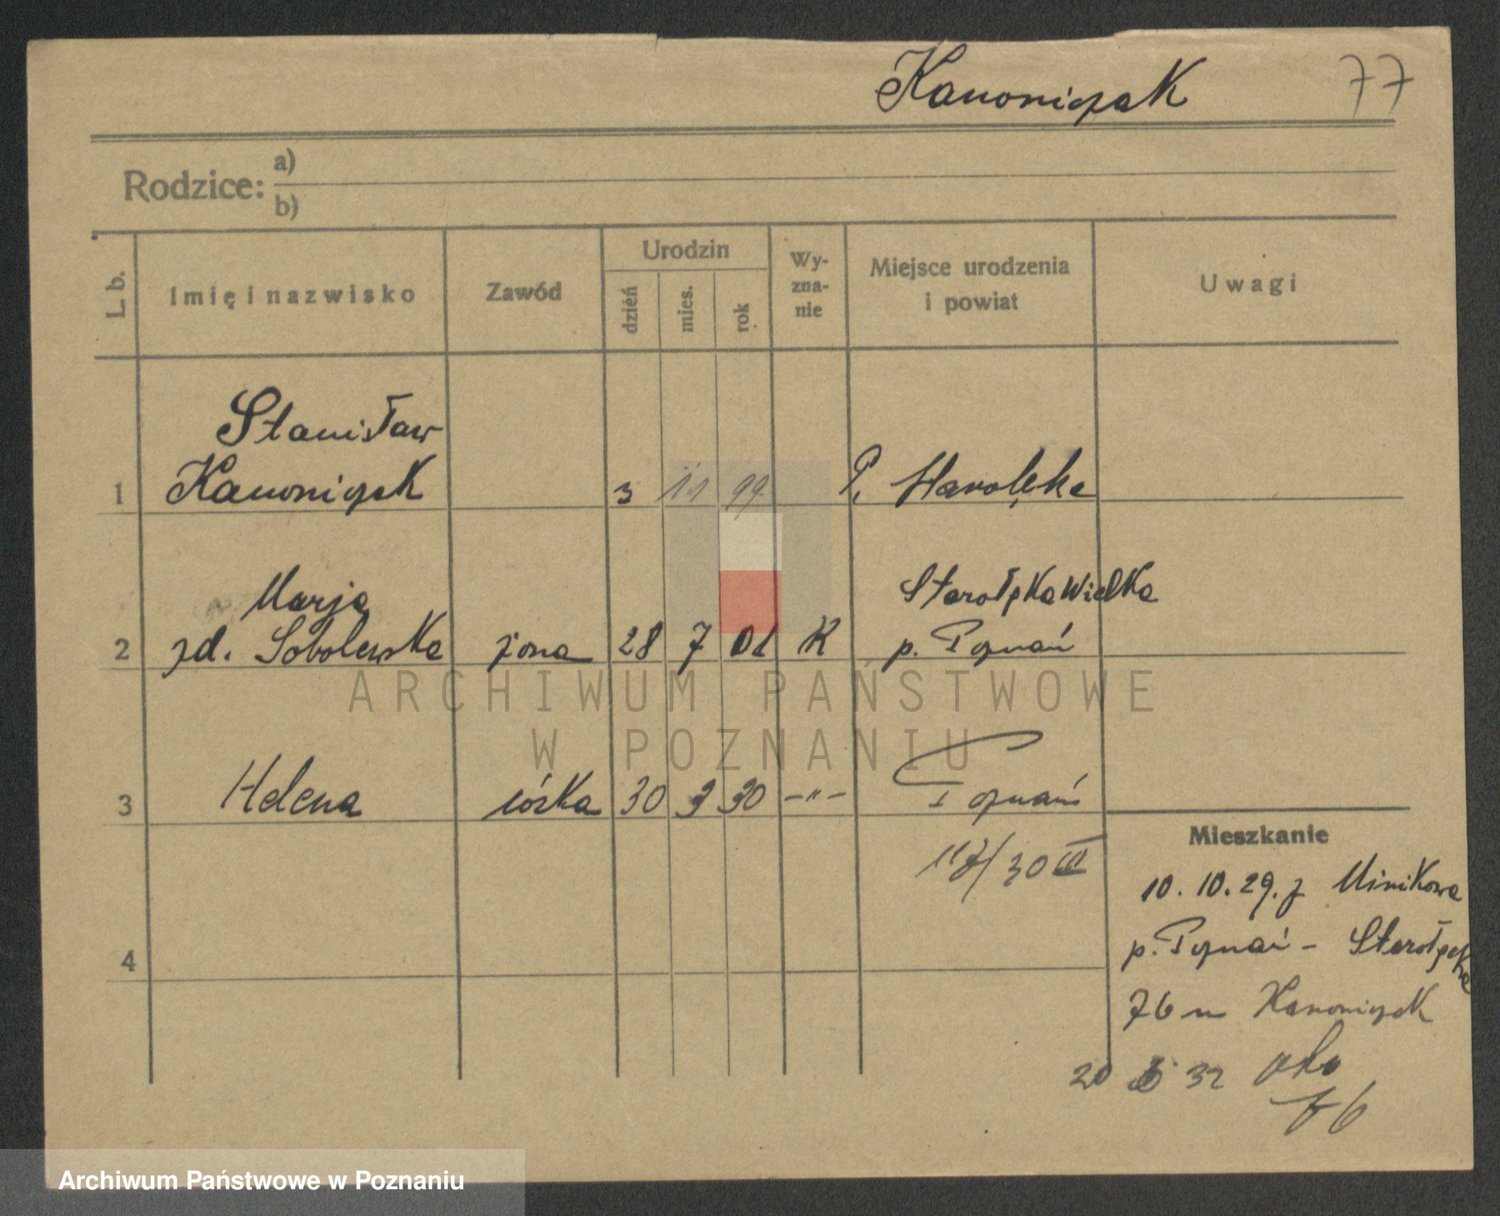 Kanoniczak 77
Rodzice: a)
b)
L. b. Imię i nazwisko Zawód Urodzin dzień mies. rok Wy-zna-nie Miejsce urodzenia i powiat Uwagi
Stanisław
1 Kanoniczak 3 11 99 P. Starołęka
Marja Starołęka Wielka
2 zd. Sobolewska żona 28 7 01 K p. Poznań
ARCHIWUM PAŃSTWOWE
W POZNANIU
3 Helena córka 30 9 30 -"- Poznań
Mieszkanie
30 III
10. 10. 29. z Minikowa
4 p. Poznań - Starołęcka
76 u Kanoniczak
20 32
76
Archiwum Państwowe w Poznaniu